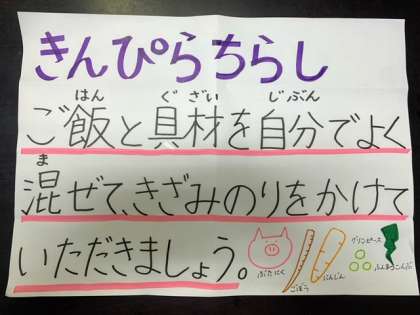 きんぴらちらし
ご飯と具材を自分でよく
混ぜて、きざみのりをかけて
いただきましょう。
はん
ぐざい
じぶん
ま
ぶたにく
ごぼう
にんじん
グリンピース